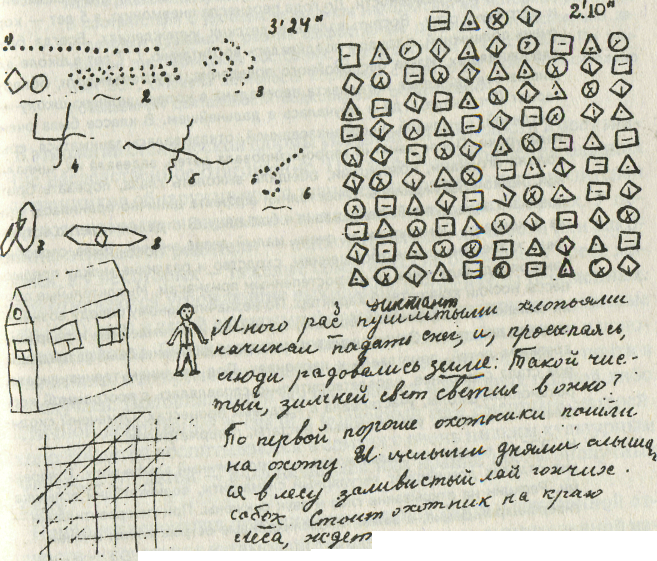 1)
3'24"
2!10"
2
3
4
5
6
7
8
диктант
Много рас пушыстыми хлопьями
начинал падать снег, и, просыпаясь,
люди радовались земле. Такой чис-
тый, зимней свет светил в окно?
По первой пороше охотники пошли
на охоту И целыми днями слыша
ся в лесу заливистый лай гончих.
собох Стоит охотник на краю
леса, ждет